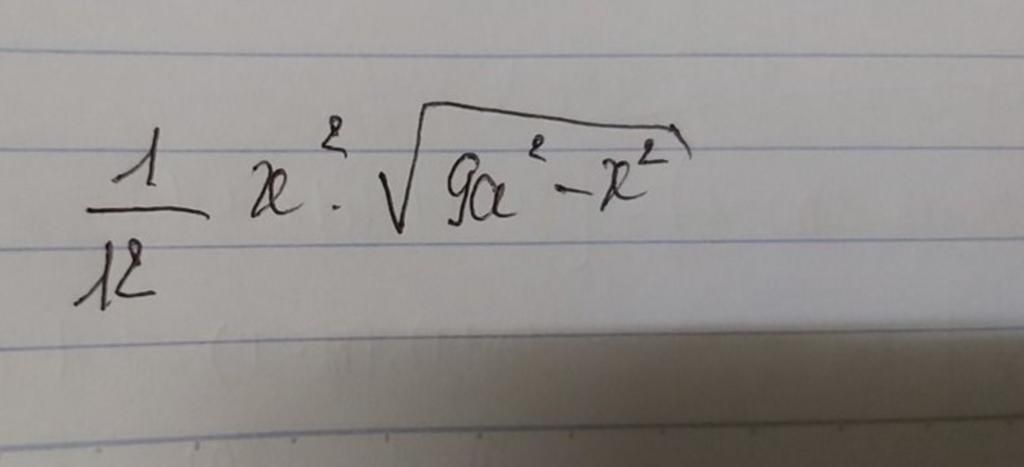 1/12 x² · √(9a² − x²)